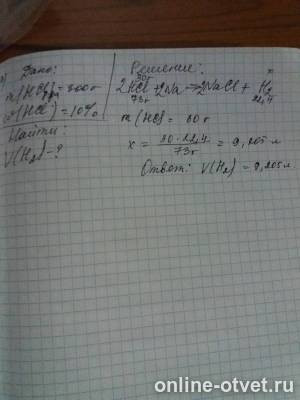 Дано:
m(HCl) = 300г
р-ра
ω(HCl) = 10%
Найти:
V(H₂) - ?
Решение:
30г x
2HCl + 2Na → 2NaCl + H₂
73г 22,4
m(HCl) = 30г
x = 30 · 22,4 / 73г = 9,205 л
Ответ: V(H₂) = 9,205л
online-otvet.ru